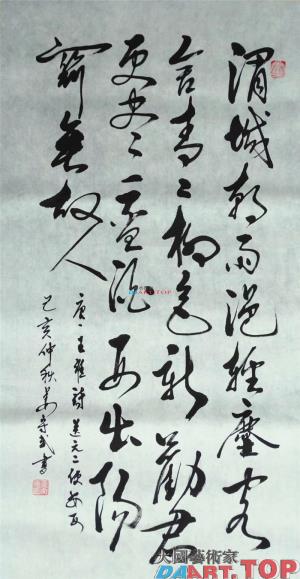 渭城朝雨浥轻尘客
舍青々柳色新劝君
更尽一杯酒西出阳
关无故人
唐·王维诗送元二使安西
己亥仲秋
大國藝術家
DAART.TOP